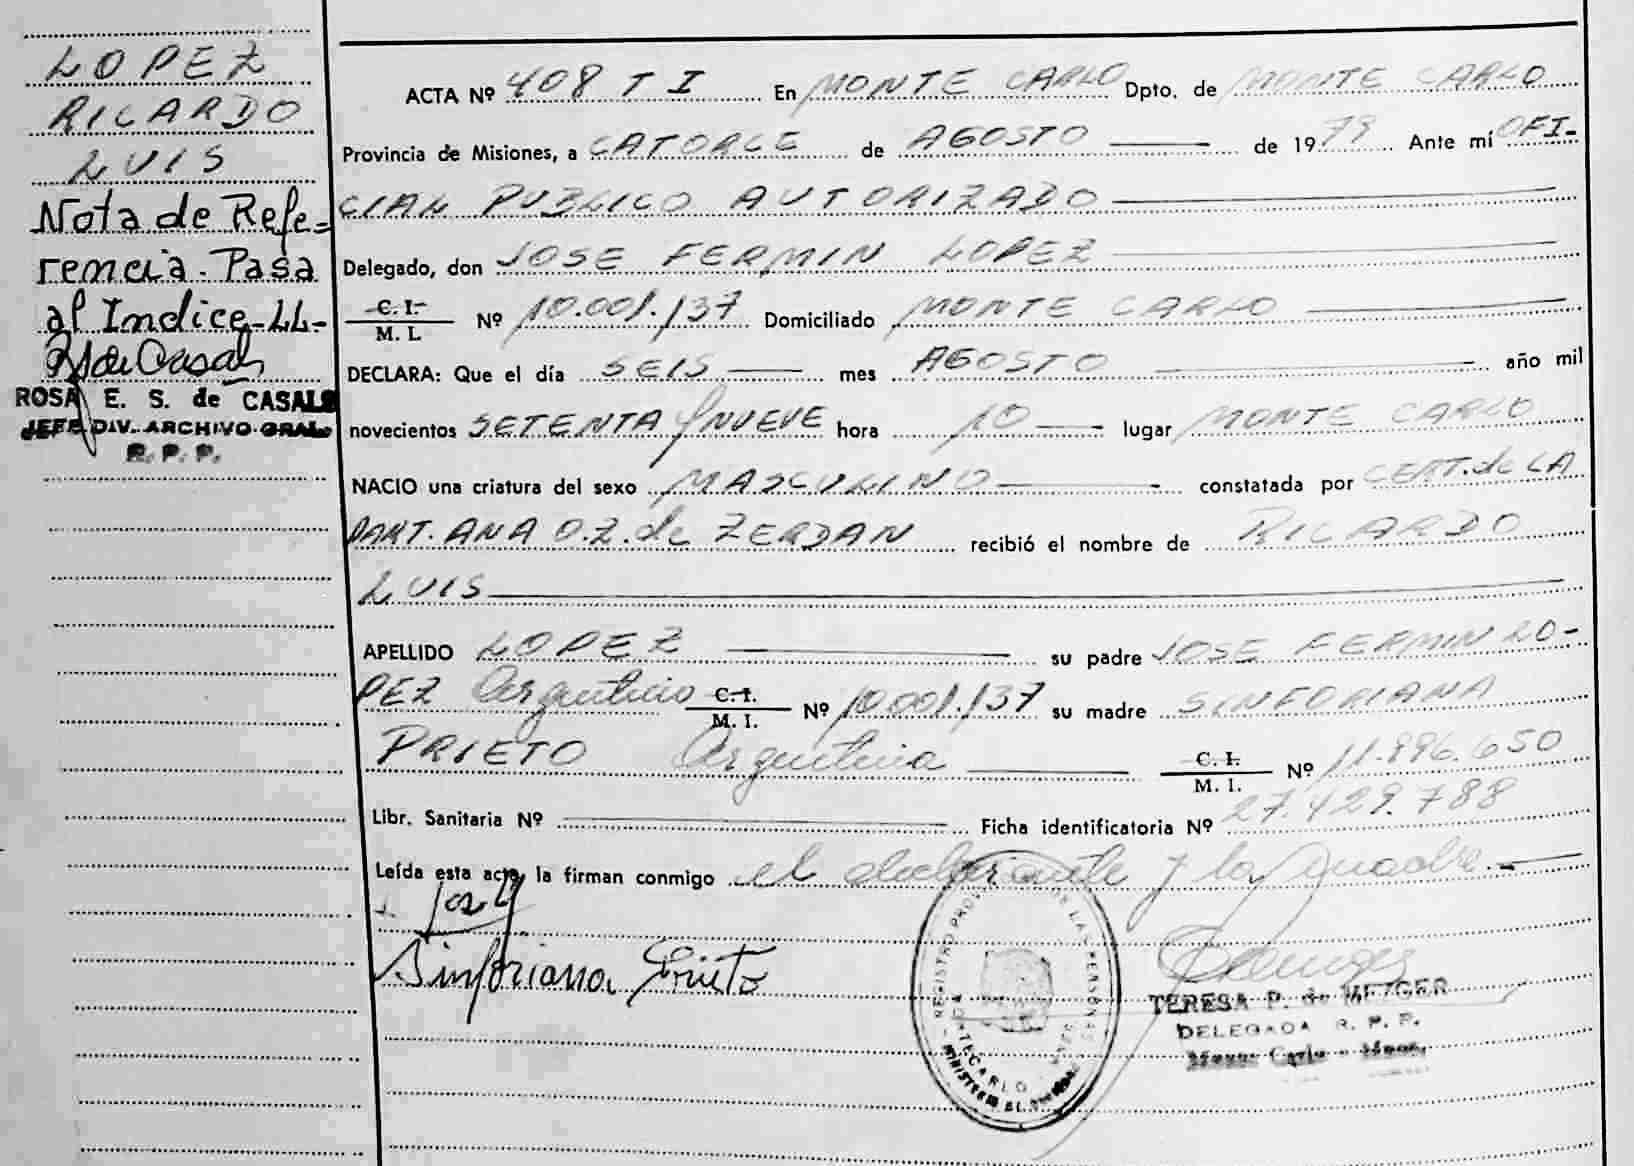 LOPEZ
RICARDO
LUIS
Nota de Refe=
rencia. Pasa
al Indice-LL-
ROSA E. S. de CASALS
JEFE DIV. ARCHIVO GRAL.
R. P. P.
ACTA Nº 408 T I En MONTE CARLO Dpto. de MONTE CARLO
Provincia de Misiones, a CATORCE de AGOSTO de 1979 Ante mí OFI-
CIAL PUBLICO AUTORIZADO
Delegado, don JOSE FERMIN LOPEZ
C. I.
M. I. Nº 10.001.137 Domiciliado MONTE CARLO
DECLARA: Que el día SEIS mes AGOSTO año mil
novecientos SETENTA y NUEVE hora 10 lugar MONTE CARLO
NACIO una criatura del sexo MASCULINO constatada por CERT. de LA
PART. ANA O. Z. de ZERDAN recibió el nombre de RICARDO
LUIS
APELLIDO LOPEZ su padre JOSE FERMIN LO-
PEZ Argentino C. I.
M. I. Nº 10.001.137 su madre SINFORIANA
PRIETO Argentina C. I.
M. I. Nº 11.996.650
Libr. Sanitaria Nº Ficha identificatoria Nº 27.429.788
Leída esta acta, la firman conmigo el declarante y la madre.-
Sinforiana Prieto
REGISTRO PROV DE LAS PERSONAS
MONTECARLO
TERESA P. de METGER
DELEGADA R. P. P.
Monte Carlo - Mnes.